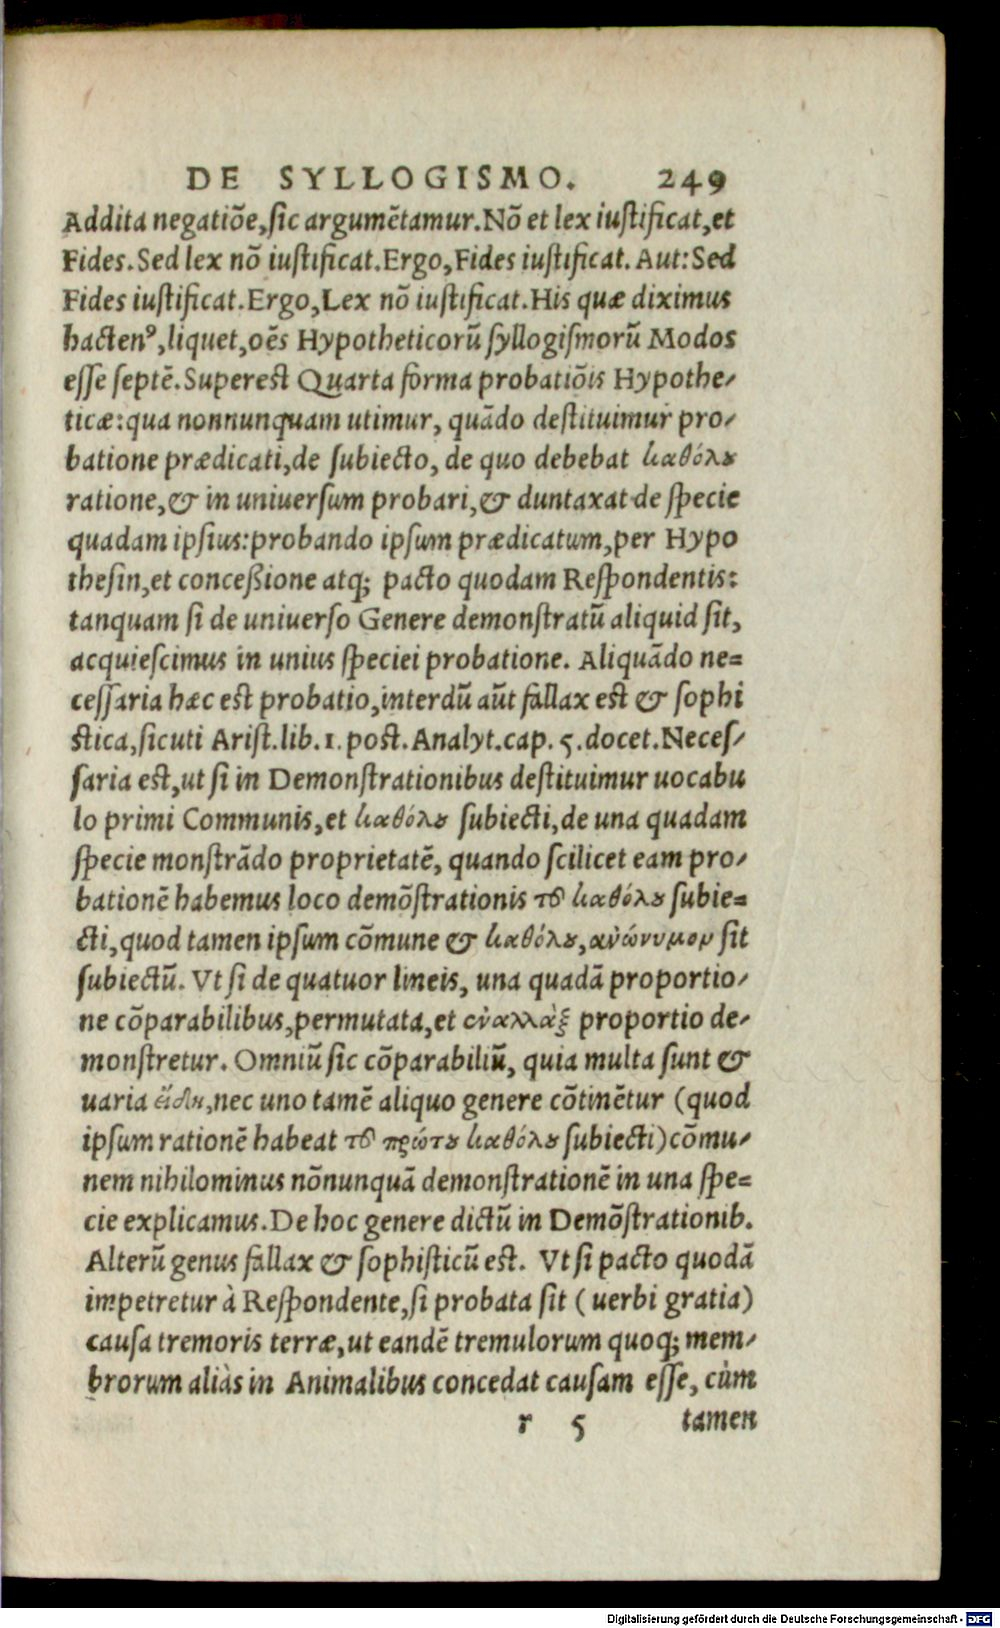 DE SYLLOGISMO. 249
Addita negatiõe, sic argumẽtamur. Nõ et lex iustificat, et
Fides. Sed lex nõ iustificat. Ergo, Fides iustificat. Aut: Sed
Fides iustificat. Ergo, Lex nõ iustificat. His quæ diximus
hactenꝰ, liquet, oẽs Hypotheticorũ syllogismorũ Modos
esse septẽ. Superest Quarta forma probatiõis Hypothe/
ticæ: qua nonnunquam utimur, quãdo destituimur pro/
batione prædicati, de subiecto, de quo debebat καθόλου
ratione, & in uniuersum probari, & duntaxat de specie
quadam ipsius: probando ipsum prædicatum, per Hypo
thesin, et conceßione atq; pacto quodam Respondentis:
tanquam si de uniuerso Genere demonstratũ aliquid sit,
acquiescimus in unius speciei probatione. Aliquãdo ne=
cessaria hæc est probatio, interdũ aũt fallax est & sophi
stica, sicuti Arist. lib. 1. post. Analyt. cap. 5. docet. Neces/
saria est, ut si in Demonstrationibus destituimur uocabu
lo primi Communis, et καθόλου subiecti, de una quadam
specie monstrãdo proprietatẽ, quando scilicet eam pro/
bationẽ habemus loco demõstrationis τοῦ καθόλου subie=
cti, quod tamen ipsum cõmune & καθόλου, ανώνυμον sit
subiectũ. Vt si de quatuor lineis, una quadã proportio/
ne cõparabilibus, permutata, et ἐναλλὰξ proportio de/
monstretur. Omniũ sic cõparabiliũ, quia multa sunt &
uaria εἴδη, nec uno tamẽ aliquo genere cõtinẽtur (quod
ipsum rationẽ habeat τοῦ πρώτου καθόλου subiecti) cõmu/
nem nihilominus nõnunquã demonstrationẽ in una spe=
cie explicamus. De hoc genere dictũ in Demõstrationib.
Alterũ genus fallax & sophisticũ est. Vt si pacto quodã
impetretur à Respondente, si probata sit (uerbi gratia)
causa tremoris terræ, ut eandẽ tremulorum quoq; mem/
brorum aliàs in Animalibus concedat causam esse, cùm
r 5 tamen
Digitalisierung gefördert durch die Deutsche Forschungsgemeinschaft - DFG